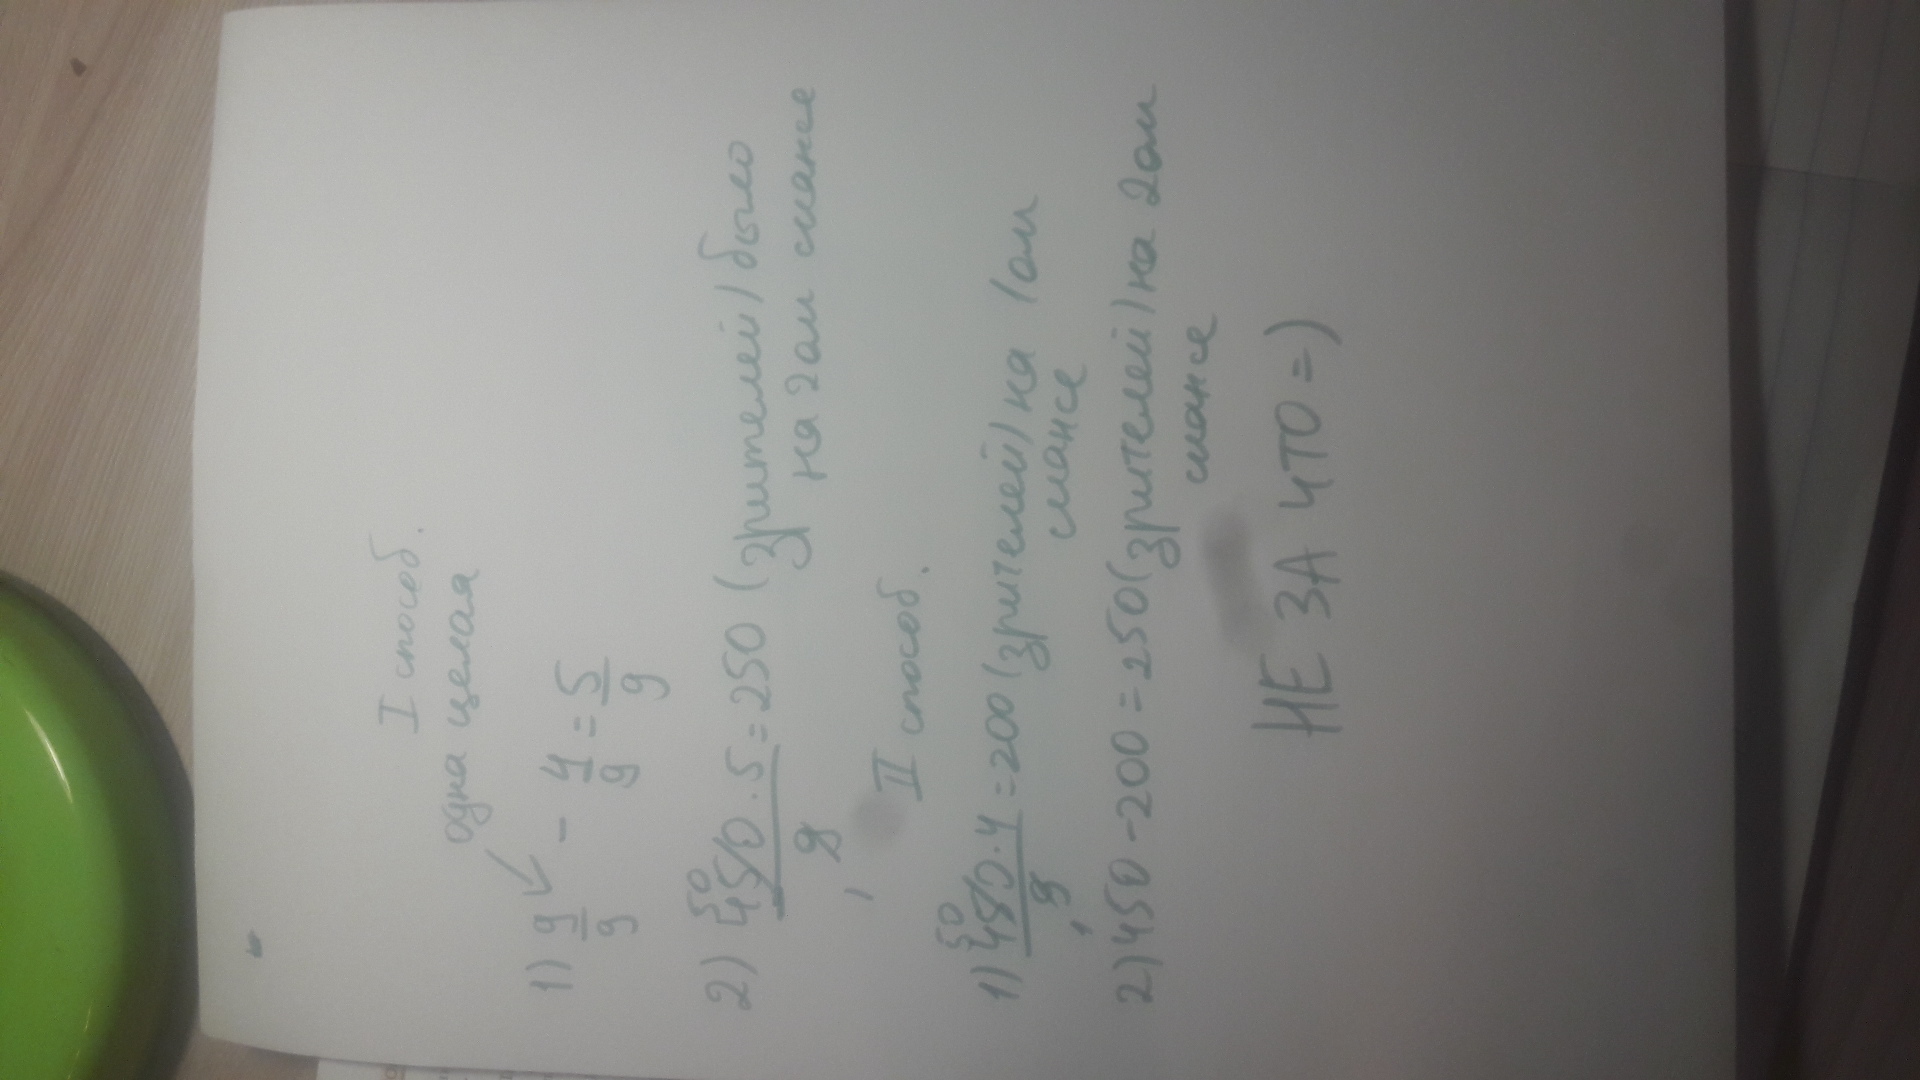 I способ.
одна целая
1) 9/9 - 4/9 = 5/9
50
2) 450 · 5 / 9 = 250 (зрителей) было
на 2ом сиансе
II способ.
50
1) 450 · 4 / 9 = 200 (зрителей) на 1ом
сиансе
2) 450 - 200 = 250 (зрителей) на 2ом
сиансе
НЕ ЗА ЧТО =)